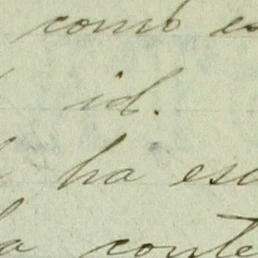 como es
id.
ha esc
la conte